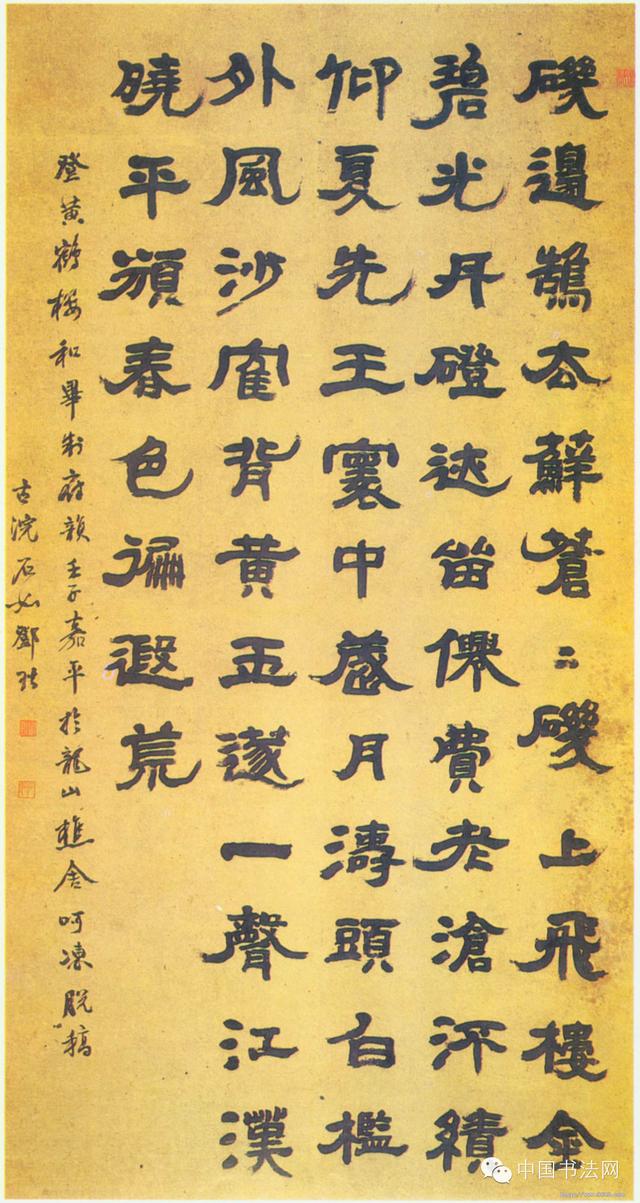 磯邊鵠去蘚蒼〻磯上飛樓金
碧光丹磴迹留僊費老滄績
仰夏先王寰中歲月濤頭白檻
外風沙寉背黃玉邃一聲江漢
曉平頒春色徧遐荒
登黃鶴樓和畢制府韻壬子嘉平於龍山樵舍呵凍脫稿
古浣石如鄧琰
中国书法网